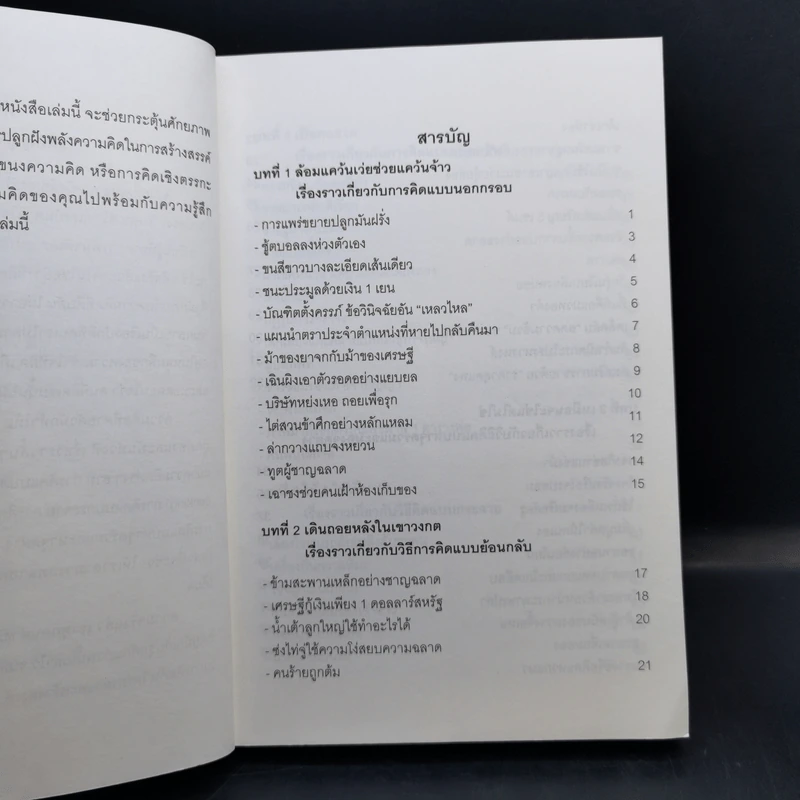 หนังสือเล่มนี้ จะช่วยกระตุ้นศักยภาพ
ปลูกฝังพลังความคิดในการสร้างสรรค์
ขนงความคิด หรือการคิดเชิงตรรกะ
มคิดของคุณไปพร้อมกับความรู้สึก
ล่มนี้
สารบัญ
บทที่ 1 ล้อมแคว้นเว่ยช่วยแคว้นจ้าว
เรื่องราวเกี่ยวกับการคิดแบบนอกกรอบ
- การแพร่ขยายปลูกมันฝรั่ง 1
- ชู้ตบอลลงห่วงตัวเอง 3
- ขนสีขาวบางละเอียดเส้นเดียว 4
- ชนะประมูลด้วยเงิน 1 เยน 5
- บัณฑิตตั้งครรภ์ ข้อวินิจฉัยอัน “เหลวไหล” 6
- แผนนำตราประจำตำแหน่งที่หายไปกลับคืนมา 7
- ม้าของยาจกกับม้าของเศรษฐี 8
- เฉินผิงเอาตัวรอดอย่างแยบยล 9
- บริษัทหย่งเหอ ถอยเพื่อรุก 10
- ไต่สวนข้าศึกอย่างหลักแหลม 11
- ล่ากวางแถบจงหยวน 12
- ทูตผู้ชาญฉลาด 14
- เฉาชงช่วยคนเฝ้าห้องเก็บของ 15
บทที่ 2 เดินถอยหลังในเขาวงกต
เรื่องราวเกี่ยวกับวิธีการคิดแบบย้อนกลับ
- ข้ามสะพานเหล็กอย่างชาญฉลาด 17
- เศรษฐีกู้เงินเพียง 1 ดอลลาร์สหรัฐ 18
- น้ำเต้าลูกใหญ่ใช้ทำอะไรได้ 20
- ซ่งไท่จู่ใช้ความโง่สยบความฉลาด
- คนร้ายถูกต้ม 21